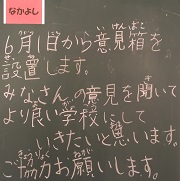 なかよし
6月1日から意見箱を
設置します。
みなさんの意見を聞いて
より良い学校にして
いきたいと思います。
ご協力お願いします。